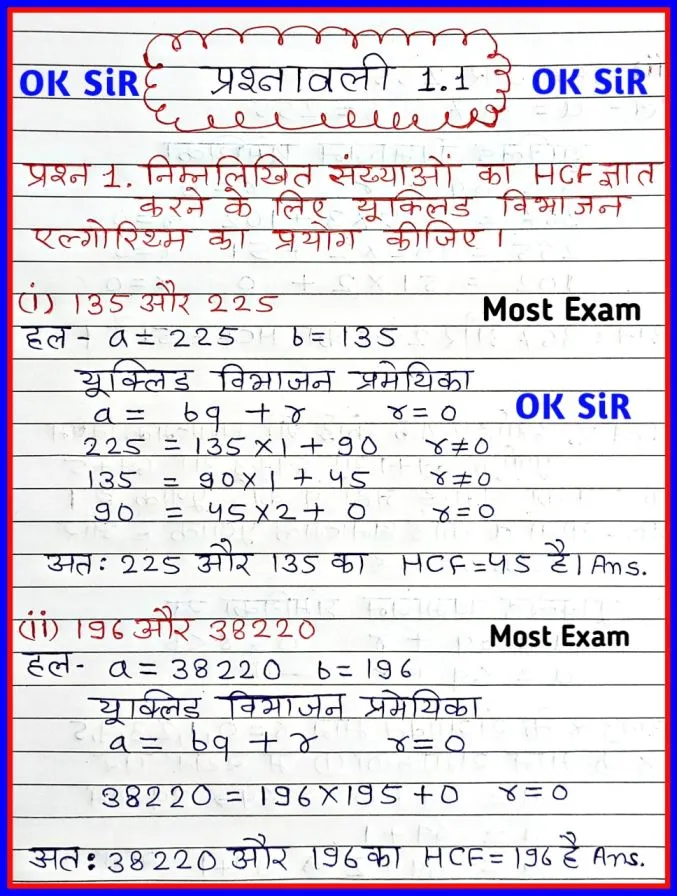 OK SiR प्रश्नावली 1.1 OK SiR
प्रश्न 1. निम्नलिखित संख्याओं का HCF ज्ञात
करने के लिए यूक्लिड विभाजन
एल्गोरिथ्म का प्रयोग कीजिए।
(i) 135 और 225
Most Exam
हल - a = 225 b = 135
यूक्लिड विभाजन प्रमेयिका
a = bq + r r = 0
OK SiR
225 = 135 × 1 + 90 r ≠ 0
135 = 90 × 1 + 45 r ≠ 0
90 = 45 × 2 + 0 r = 0
अतः 225 और 135 का HCF = 45 है। Ans.
(ii) 196 और 38220
Most Exam
हल - a = 38220 b = 196
यूक्लिड विभाजन प्रमेयिका
a = bq + r r = 0
38220 = 196 × 195 + 0 r = 0
अतः 38220 और 196 का HCF = 196 है Ans.